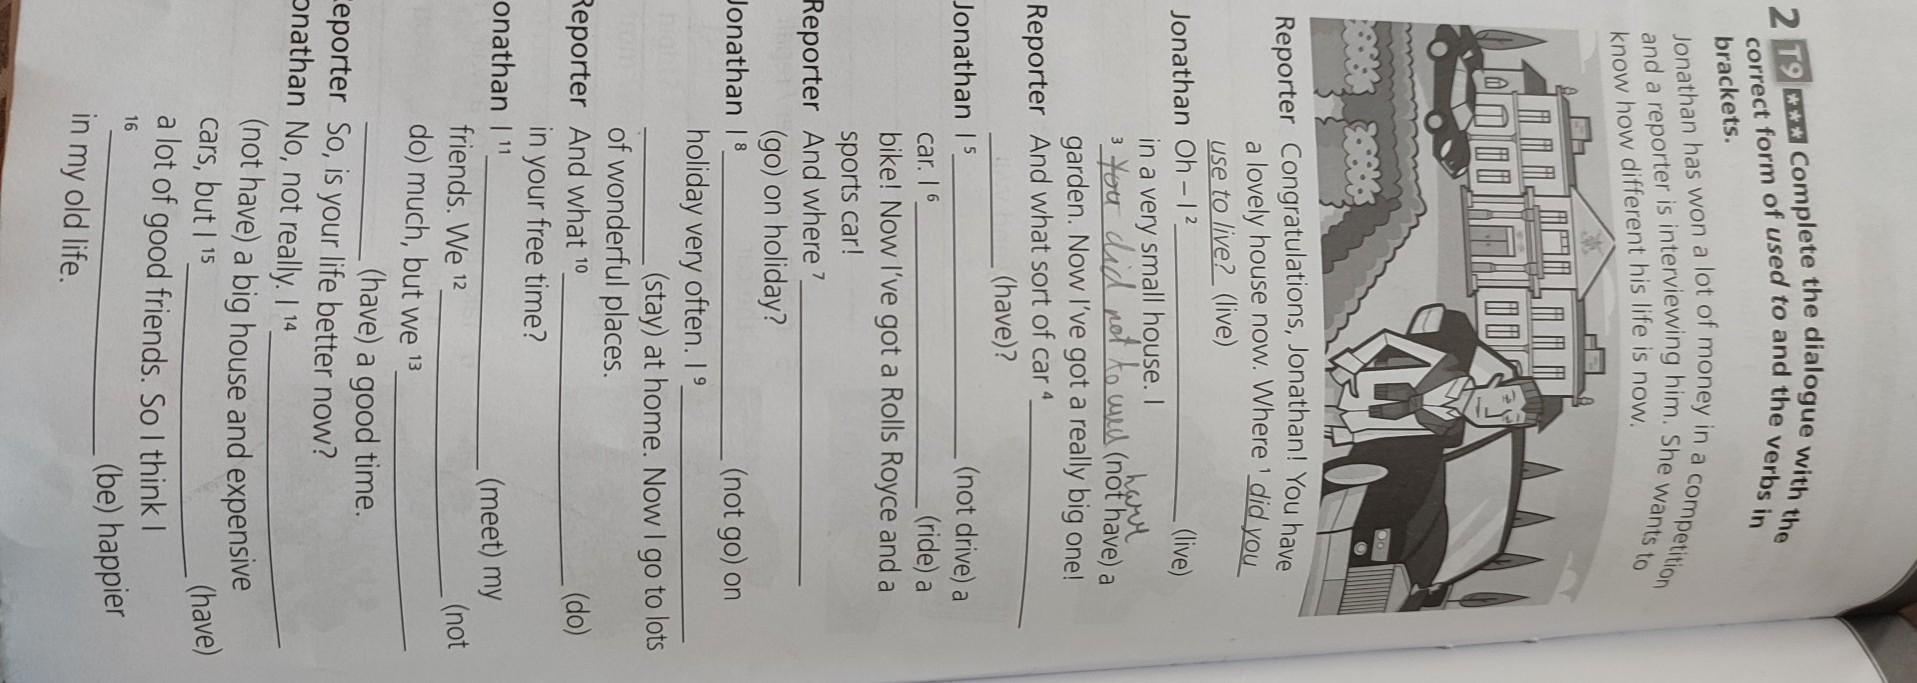 2 T9 *** Complete the dialogue with the
correct form of used to and the verbs in
brackets.
Jonathan has won a lot of money in a competition
and a reporter is interviewing him. She wants to
know how different his life is now.
Reporter Congratulations, Jonathan! You have
a lovely house now. Where 1 did you
use to live? (live)
Jonathan Oh – I 2 ____________ (live)
in a very small house. I
hant
3 You did not to used (not have) a
garden. Now I've got a really big one!
Reporter And what sort of car 4 ____________
____________ (have)?
Jonathan I 5 ____________ (not drive) a
car. I 6 ____________ (ride) a
bike! Now I've got a Rolls Royce and a
sports car!
Reporter And where 7 ____________
(go) on holiday?
Jonathan I 8 ____________ (not go) on
holiday very often. I 9 ____________
____________ (stay) at home. Now I go to lots
of wonderful places.
Reporter And what 10 ____________ (do)
in your free time?
onathan I 11 ____________ (meet) my
friends. We 12 ____________ (not
do) much, but we 13 ____________
____________ (have) a good time.
eporter So, is your life better now?
onathan No, not really. I 14 ____________
(not have) a big house and expensive
cars, but I 15 ____________ (have)
a lot of good friends. So I think I
16 ____________ (be) happier
in my old life.